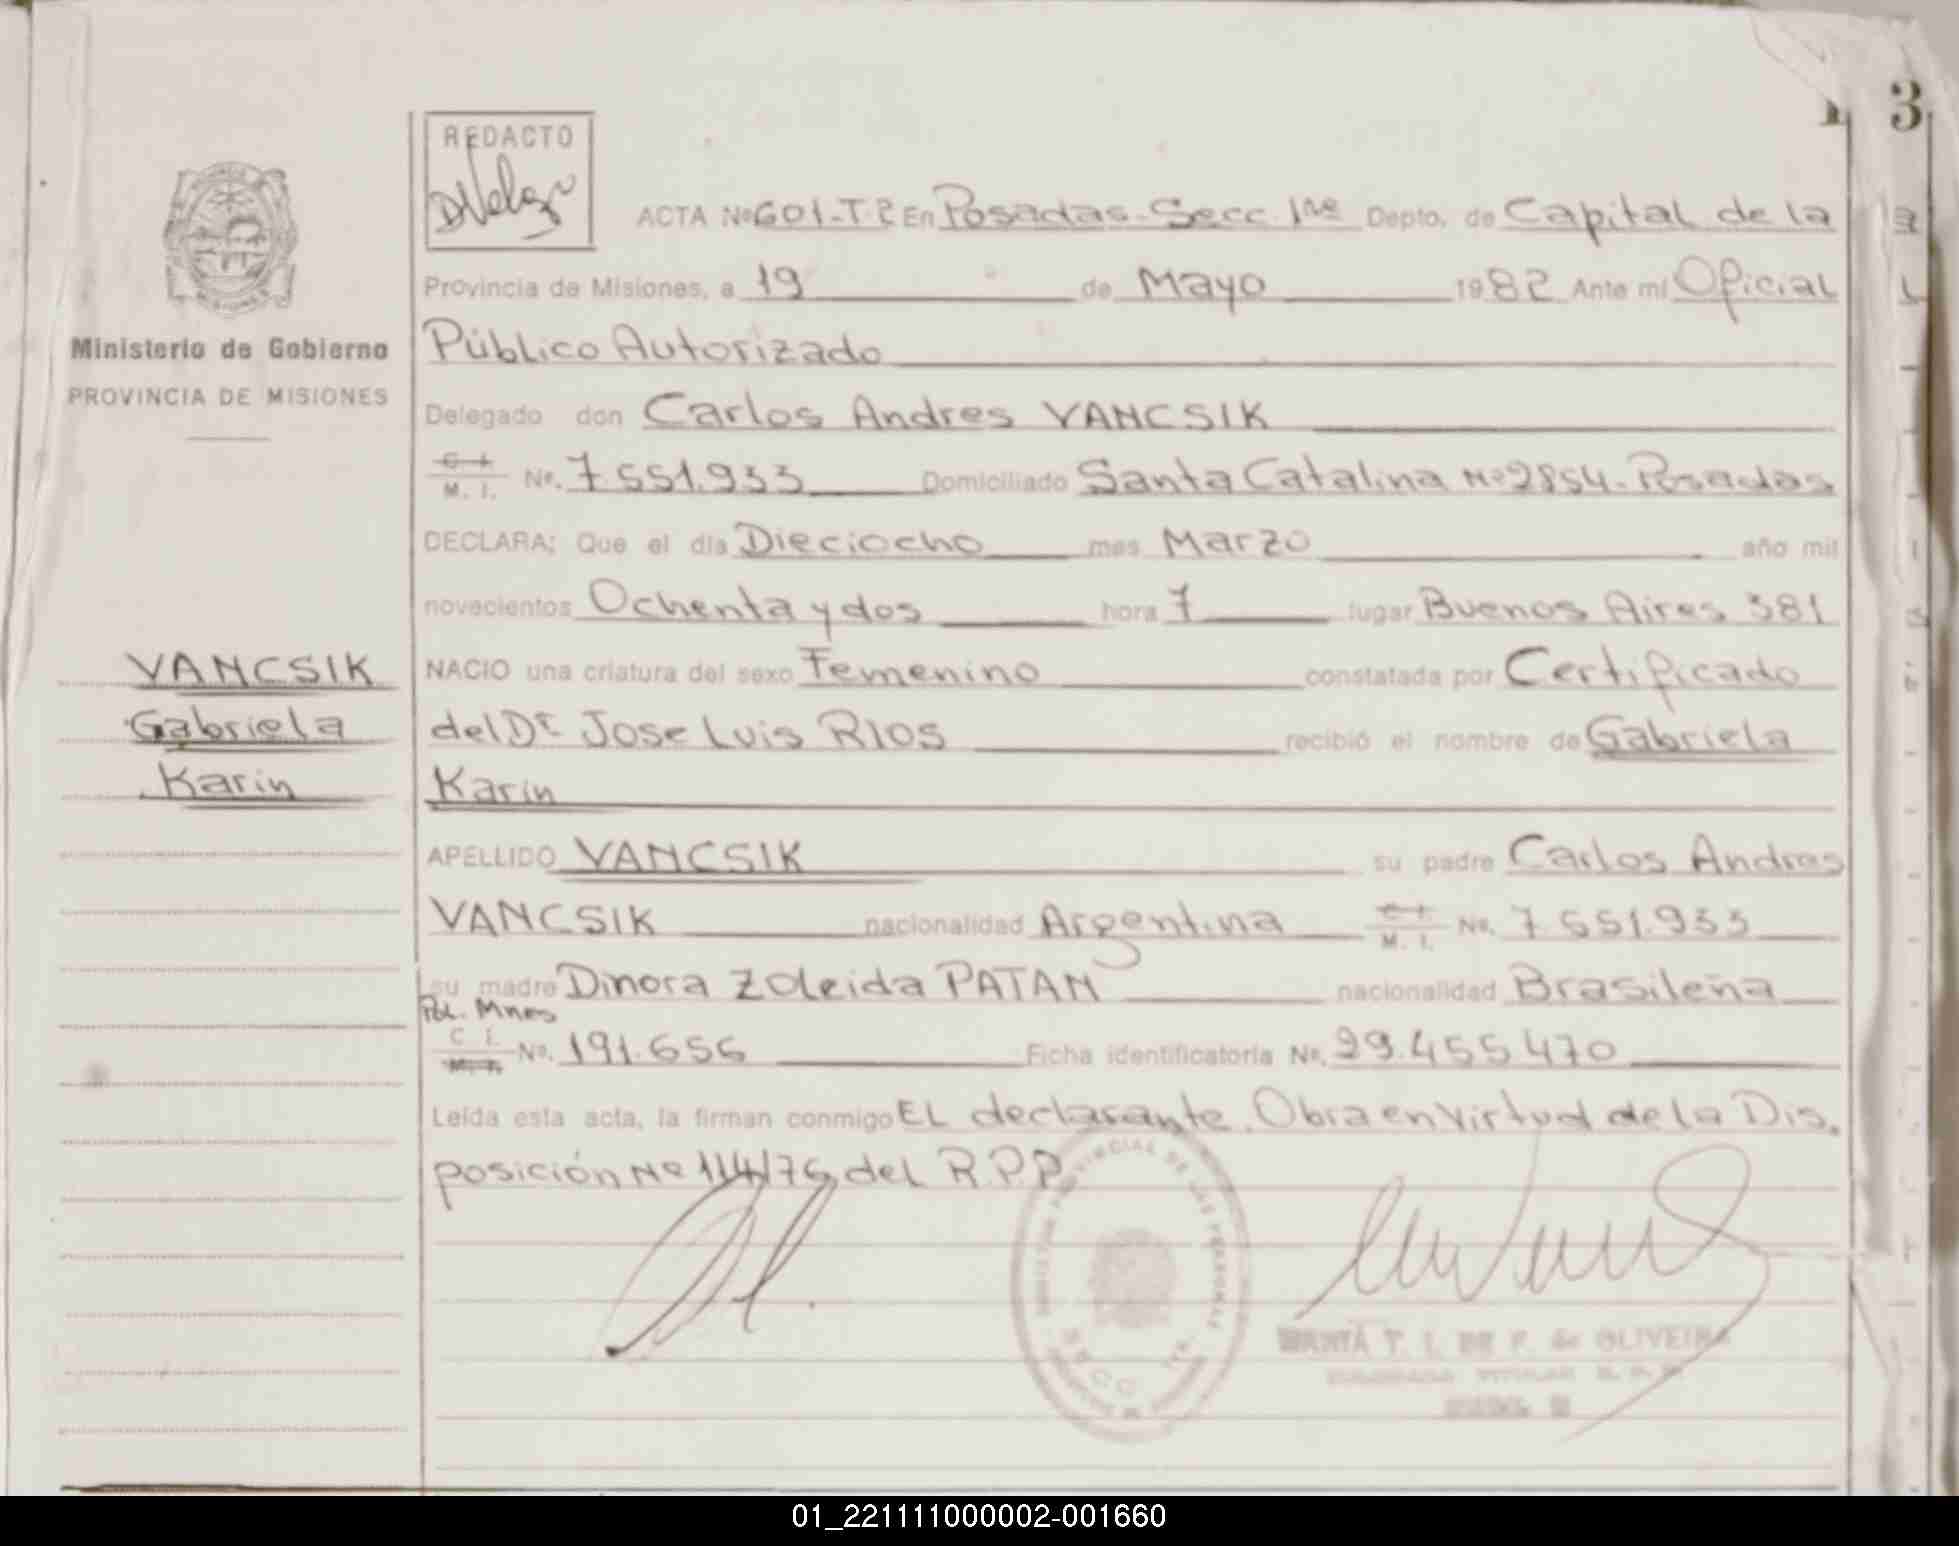 3
REDACTO
ACTA Nº 601-T.2 En Posadas-Secc. 1ra Depto. de Capital de la
Provincia de Misiones, a 19 de Mayo 1982 Ante mi Oficial
Público Autorizado
Ministerio de Gobierno
PROVINCIA DE MISIONES
Delegado don Carlos Andres VANCSIK
C. I.
M. I. Nº. 7.551.933 Domiciliado Santa Catalina Nº 2854-Posadas
DECLARA; Que el día Dieciocho mes Marzo año mil
novecientos Ochenta y dos hora 7 lugar Buenos Aires 381
VANCSIK
Gabriela
Karin
NACIO una criatura del sexo Femenino constatada por Certificado
del Dr Jose Luis RIOS recibió el nombre de Gabriela
Karin
APELLIDO VANCSIK su padre Carlos Andres
VANCSIK nacionalidad Argentina C. I. M. I. Nº. 7.551.933
su madre Dinora Zoleida PATAN nacionalidad Brasileña
Pol. Mnes
C. I.
M. I. Nº. 191.656 Ficha identificatoria Nº. 29.455.470
Leída esta acta, la firman conmigo EL declarante. Obra en virtud de la Dis.
posición Nº 114/76 del R.P.P.
PROVINCIAL DE LAS PERSONAS
SECC. 1ra.
T. I. DE F. de OLIVEIRA
TITULAR
01_221111000002-001660